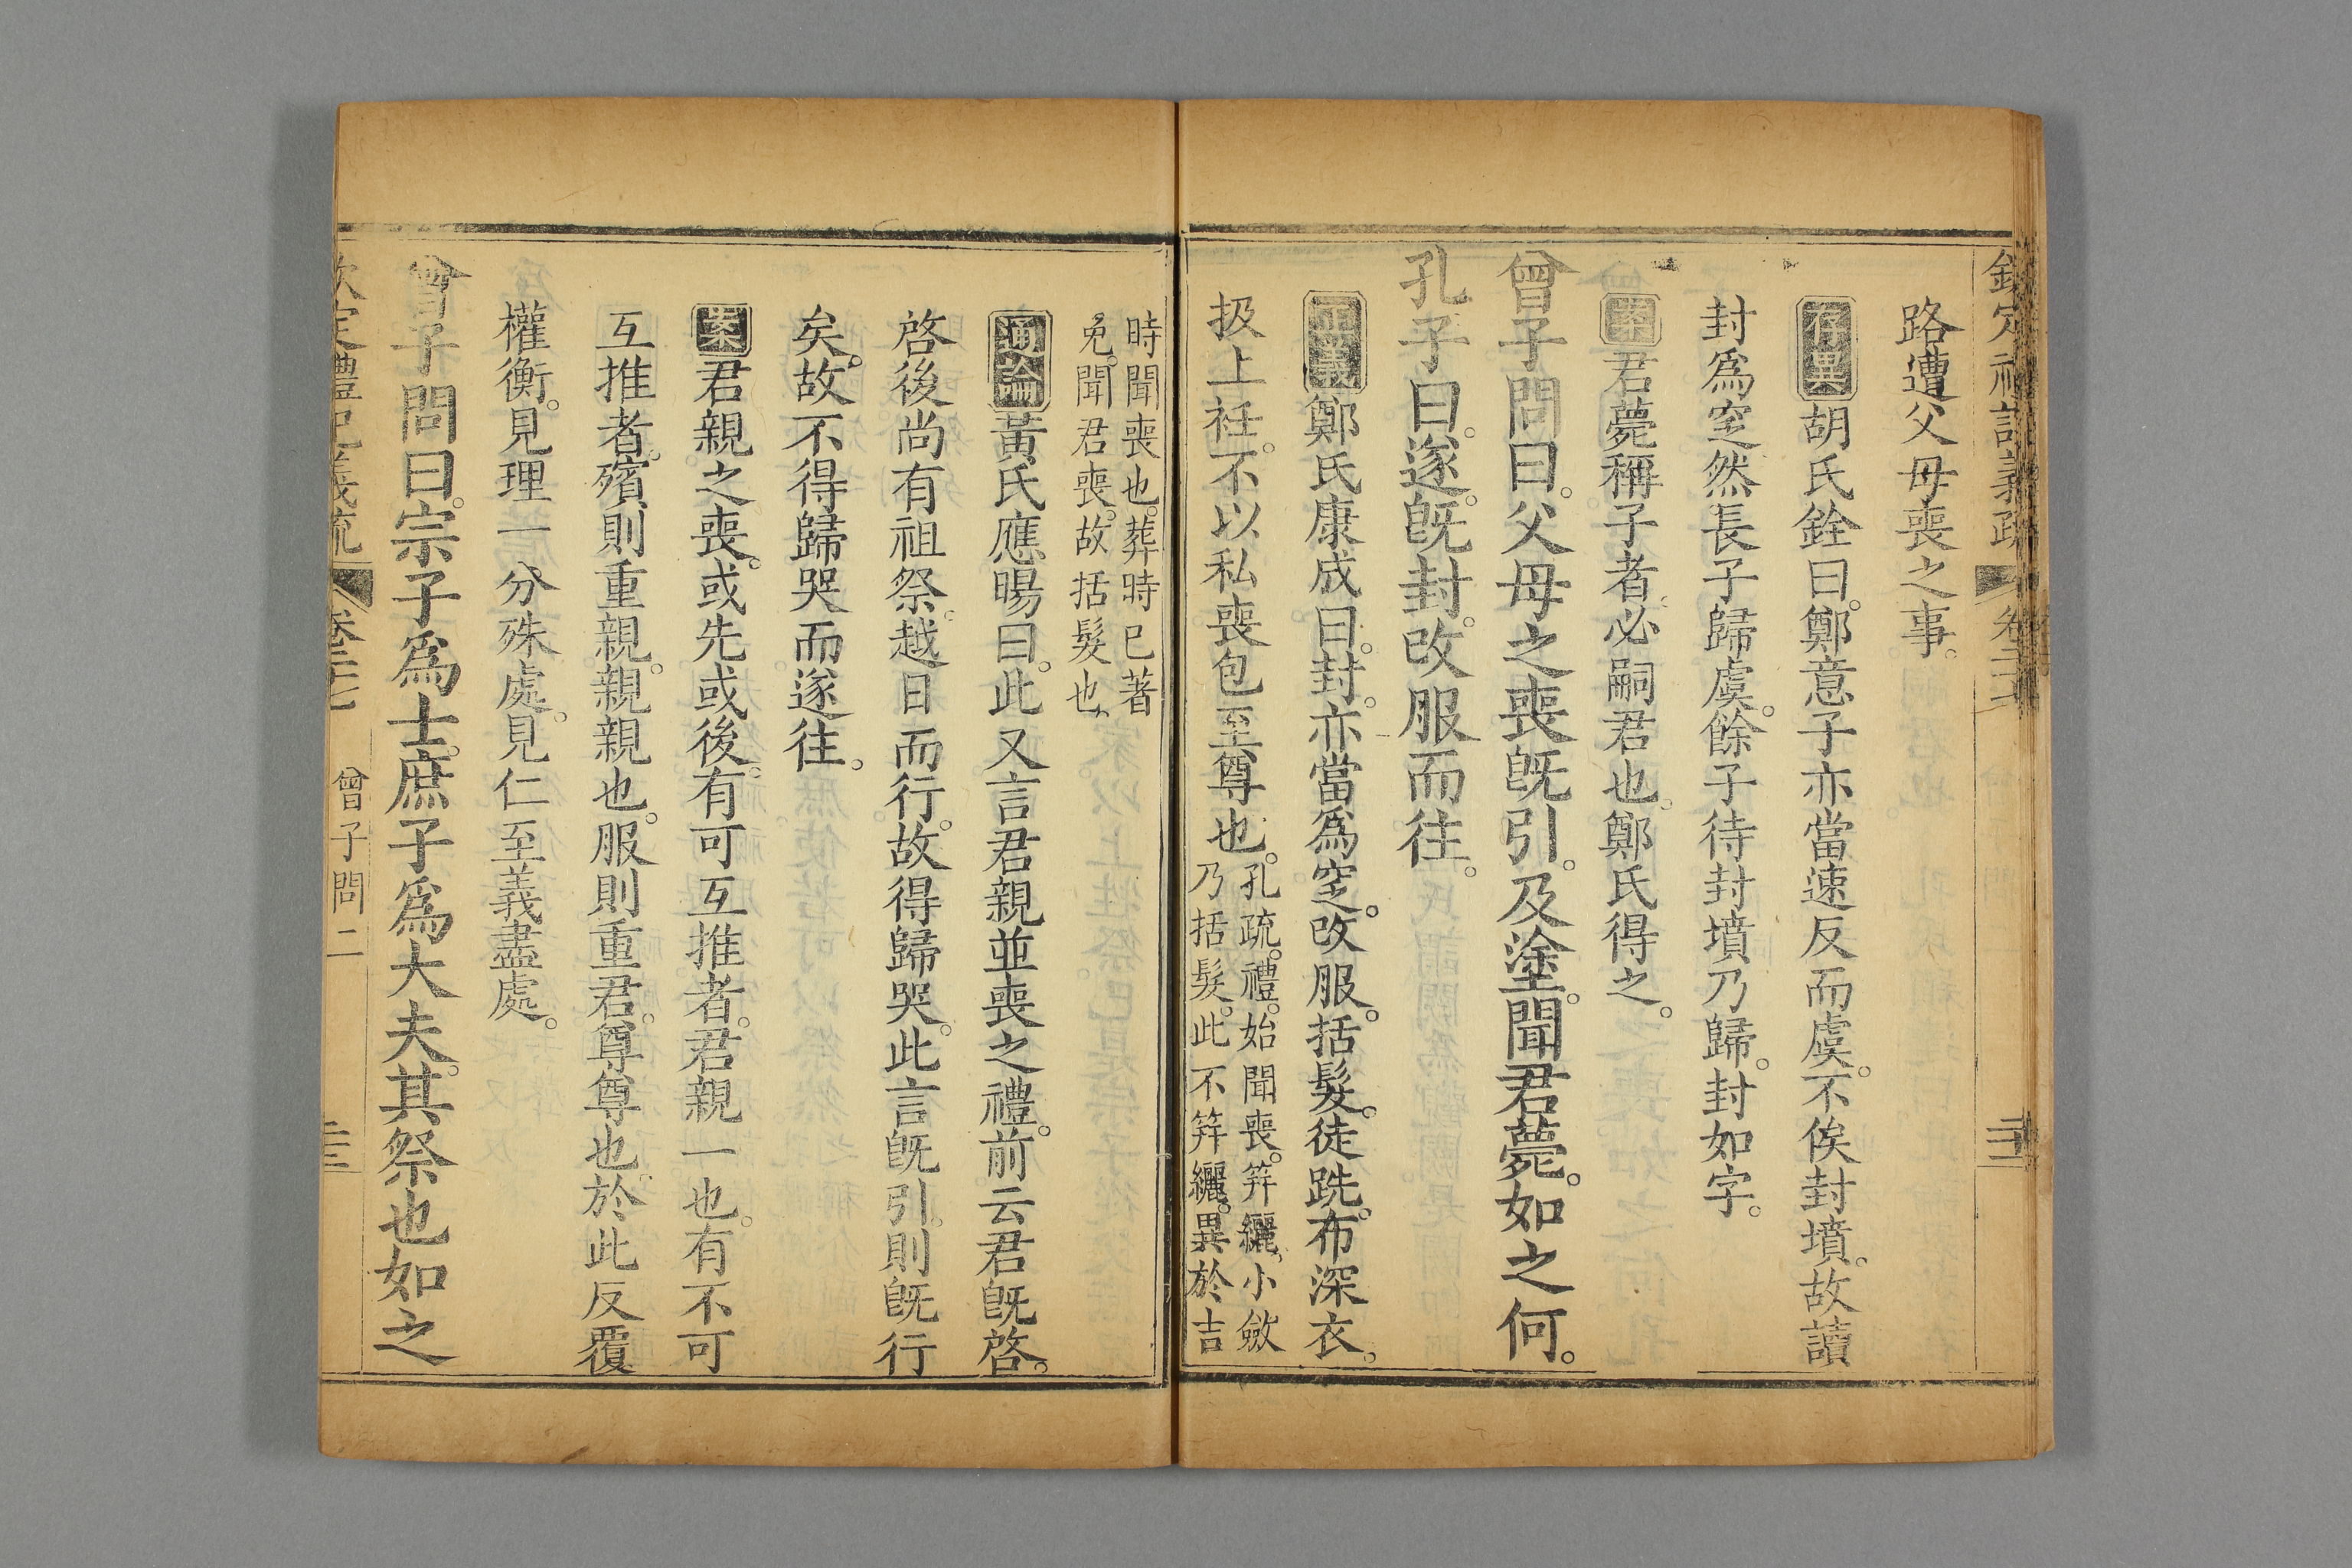 路遭父母喪之事。
存異胡氏銓曰。鄭意子亦當速反而虞。不俟封墳。故讀
封爲窆。然長子歸虞。餘子待封墳乃歸。封如字。
案君薨稱子者。必嗣君也。鄭氏得之。
曾子問曰。父母之喪旣引。及塗。聞君薨。如之何。
孔子曰。遂。旣封。改服而往。
正義鄭氏康成曰。封。亦當爲窆。改服。括髮。徒跣。布深衣。
扱上衽。不以私喪包至尊也。
孔疏。禮。始聞喪。筓纚。小斂
乃括髮。此不筓纚。異於吉
時聞喪也。葬時已著
免。聞君喪。故括髮也。
通論黃氏應暘曰。此又言君親並喪之禮。前云君旣啓。
啓後尚有祖祭。越日而行。故得歸哭。此言旣引。則旣行
矣。故不得歸哭而遂往。
案君親之喪。或先或後。有可互推者。君親一也。有不可
互推者。殯則重親。親親也。服則重君。尊尊也。於此反覆
權衡。見理一分殊處。見仁至義盡處。
曾子問曰。宗子爲士。庶子爲大夫。其祭也如之
欽定禮記義疏 卷二十七 曾子問二